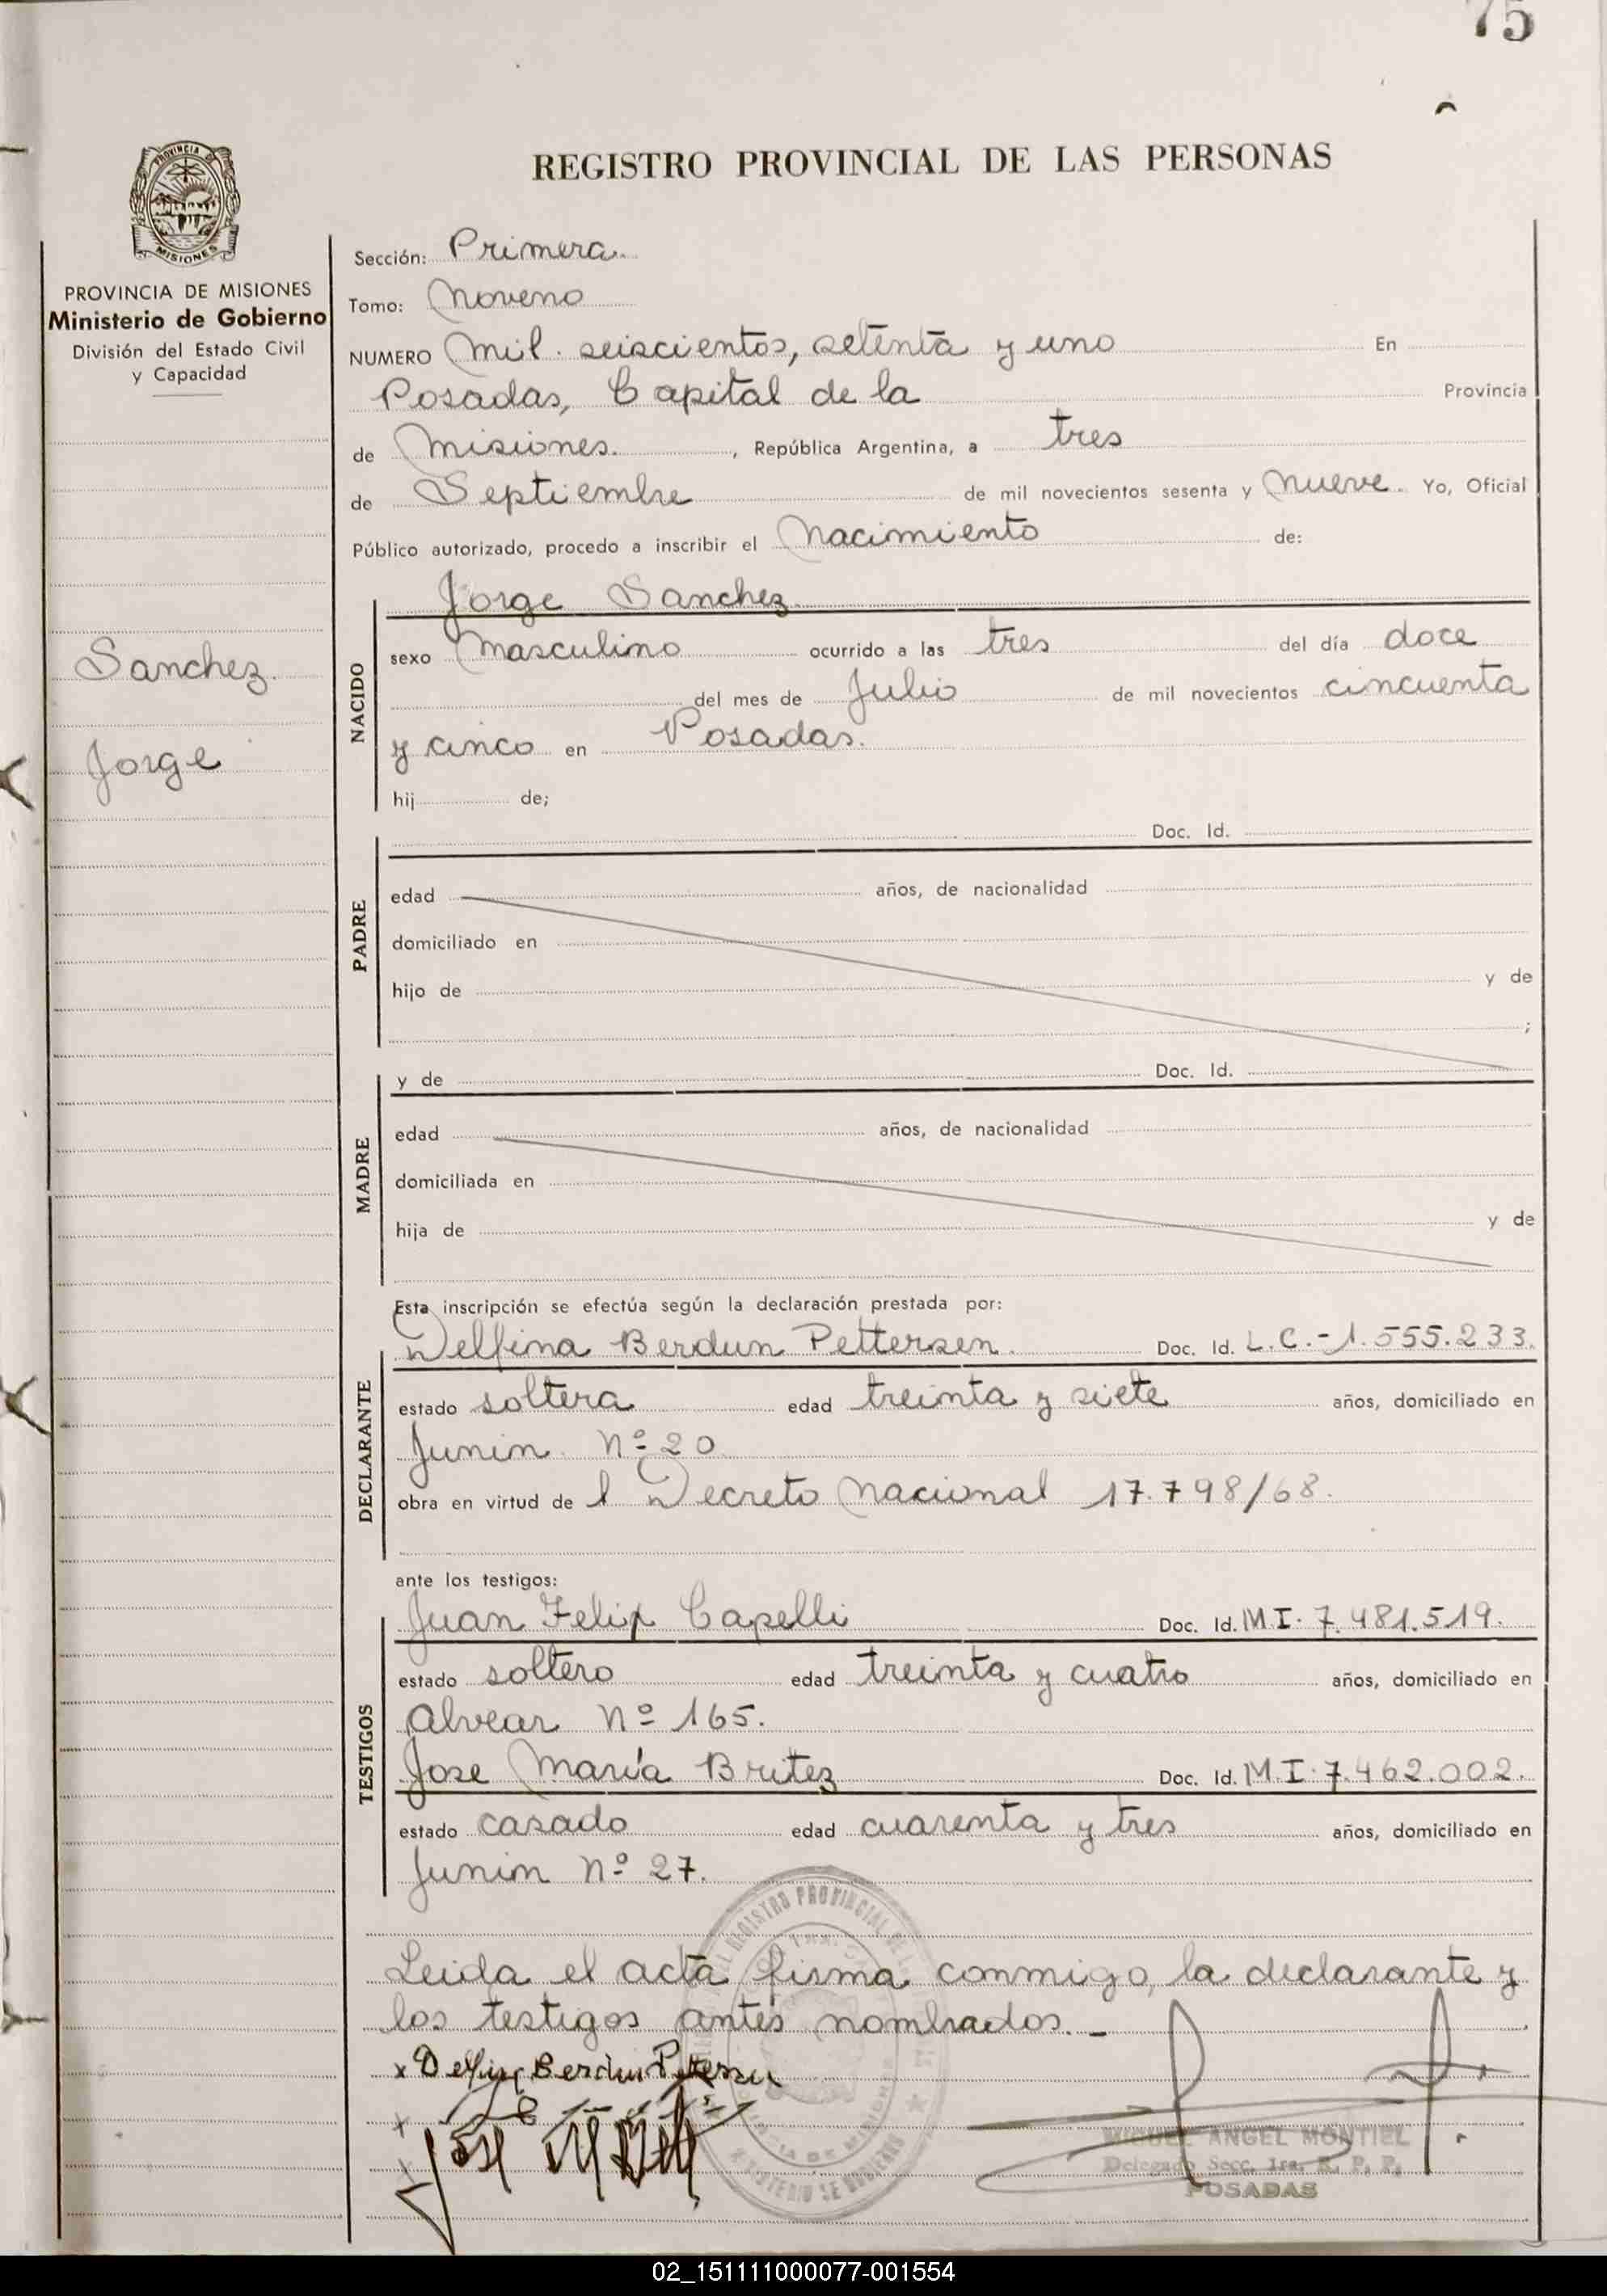 75
REGISTRO PROVINCIAL DE LAS PERSONAS
PROVINCIA DE MISIONES
Ministerio de Gobierno
División del Estado Civil
y Capacidad
Sanchez.
Jorge
Sección: Primera.
Tomo: Noveno
NUMERO Mil. seiscientos, setenta y uno En
Posadas, Capital de la Provincia
de Misiones. , República Argentina, a tres
de Septiembre de mil novecientos sesenta y Nueve. Yo, Oficial
Público autorizado, procedo a inscribir el Nacimiento de:
Jorge Sanchez
NACIDO
sexo Masculino ocurrido a las tres del día doce
del mes de Julio de mil novecientos cincuenta
y cinco en Posadas.
hij de;
Doc. Id.
PADRE
edad años, de nacionalidad
domiciliado en
hijo de y de
;
y de Doc. Id.
MADRE
edad años, de nacionalidad
domiciliada en
hija de y de
Esta inscripción se efectúa según la declaración prestada por:
Delfina Berdun Pettersen. Doc. Id. L.C.-1.555.233.
DECLARANTE
estado soltera edad treinta y siete años, domiciliado en
Junin Nº 20
obra en virtud de l Decreto Nacional 17.798/68.
ante los testigos:
Juan Felip Capelli Doc. Id. M.I. 7.481.519.
TESTIGOS
estado soltero edad treinta y cuatro años, domiciliado en
Alvear Nº 165.
Jose María Britez Doc. Id. M.I. 7.462.002.
estado casado edad cuarenta y tres años, domiciliado en
Junin Nº 27.
Leida el acta firma conmigo, la declarante y
los testigos antes nombrados. -
x Delfina Berdun Petersen
MIGUEL ANGEL MONTIEL
Delegado Secc. 1ra. R. P. P.
POSADAS
02_151111000077-001554